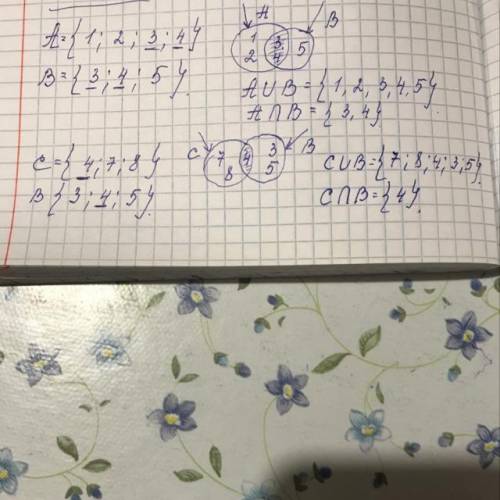 A={1; 2; 3; 4}
B={3; 4; 5}
A B
1 3 5
2 4
A∪B={1, 2, 3, 4, 5}
A∩B={3, 4}
C={4; 7; 8}
B{3; 4; 5}
C 7 4 3 B
8 5
C∪B={7; 8; 4; 3; 5}
C∩B={4}